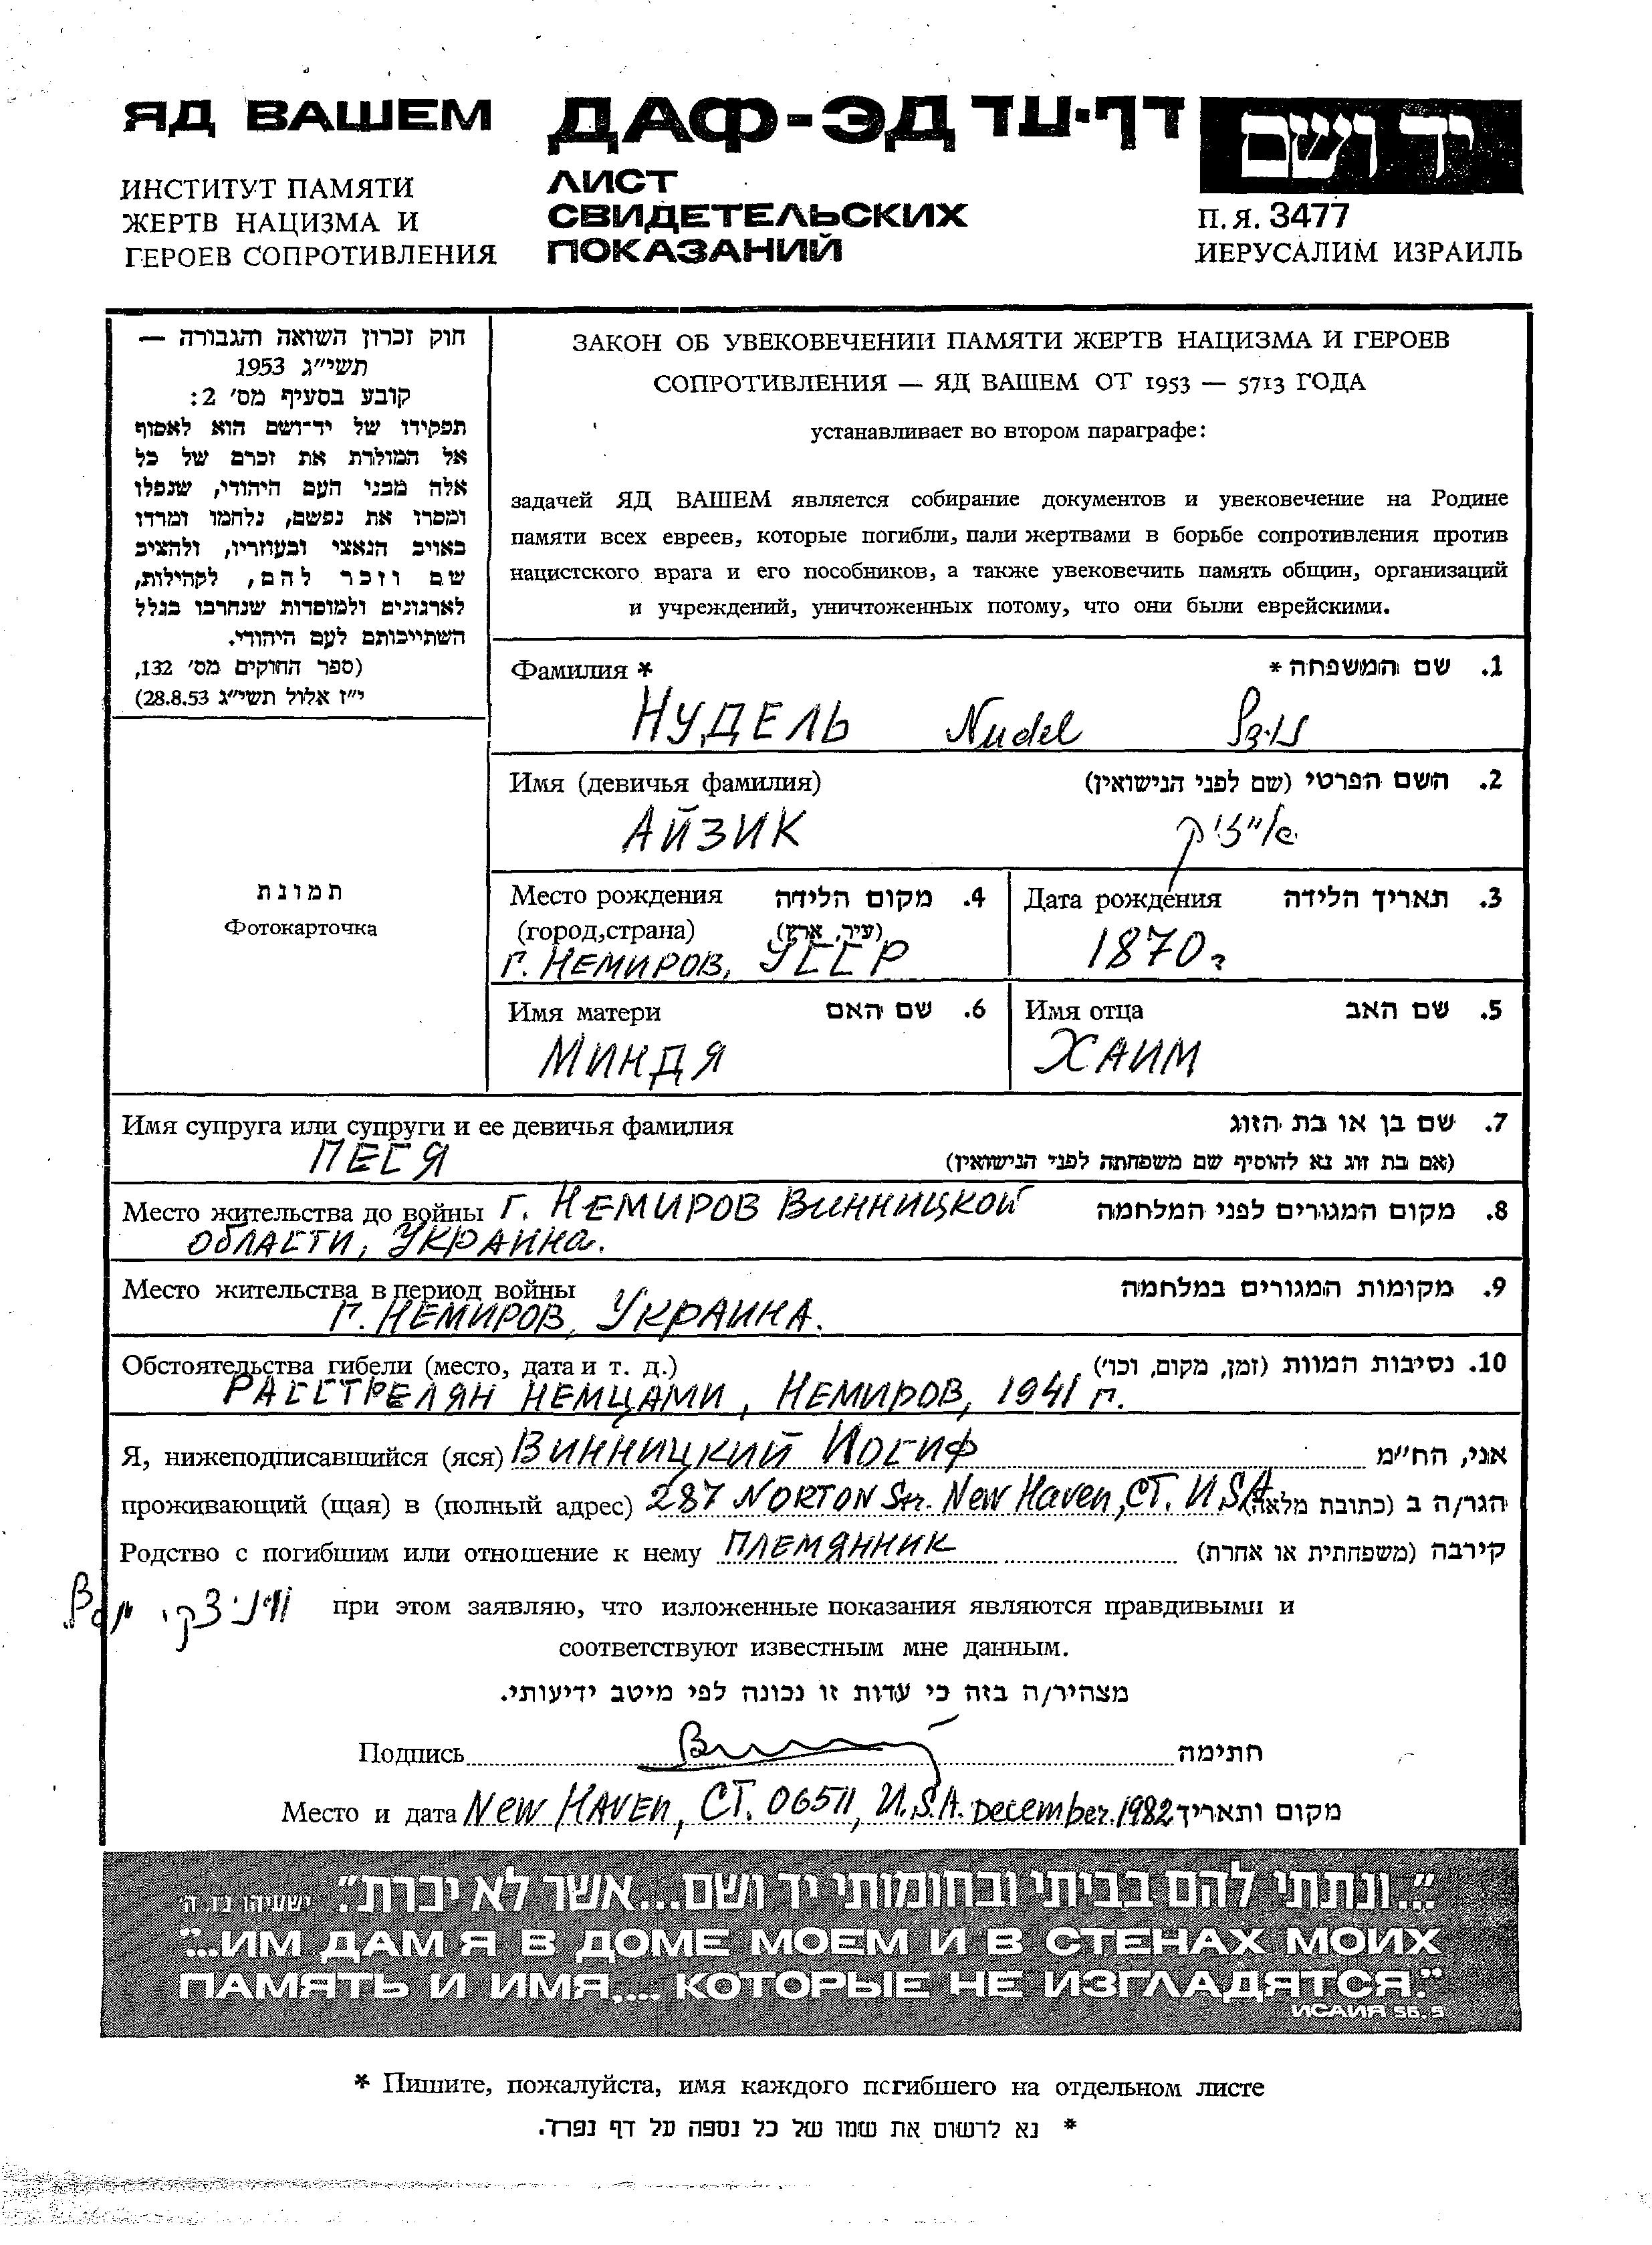 ЯД ВАШЕМ
ИНСТИТУТ ПАМЯТИ
ЖЕРТВ НАЦИЗМА И
ГЕРОЕВ СОПРОТИВЛЕНИЯ
ДАФ-ЭД דף-עד
ЛИСТ
СВИДЕТЕЛЬСКИХ
ПОКАЗАНИЙ
יד ושם
П.Я. 3477
ИЕРУСАЛИМ ИЗРАИЛЬ
חוק זכרון השואה והגבורה —
תשי״ג 1953
קובע בסעיף מס׳ 2:
תפקידו של יד־ושם הוא לאסוף
אל המולדת את זכרם של כל
אלה מבני העם היהודי, שנפלו
ומסרו את נפשם, נלחמו ומרדו
באויב הנאצי ובעוזריו, ולהציב
שם וזכר להם, לקהילות,
לארגונים ולמוסדות שנחרבו בגלל
השתייכותם לעם היהודי.
(ספר החוקים מס׳ 132,
י״ז אלול תשי״ג 28.8.53)
ЗАКОН ОБ УВЕКОВЕЧЕНИИ ПАМЯТИ ЖЕРТВ НАЦИЗМА И ГЕРОЕВ
СОПРОТИВЛЕНИЯ — ЯД ВАШЕМ ОТ 1953 — 5713 ГОДА
устанавливает во втором параграфе:
задачей ЯД ВАШЕМ является собирание документов и увековечение на Родине
памяти всех евреев, которые погибли, пали жертвами в борьбе сопротивления против
нацистского врага и его пособников, а также увековечить память общин, организаций
и учреждений, уничтоженных потому, что они были еврейскими.
תמונת
Фотокарточка
Фамилия * 1. שם המשפחה *
НУДЕЛЬ Nudel נודל
Имя (девичья фамилия) 2. השם הפרטי (שם לפני הנישואין)
АЙЗИК אייזיק
Место рождения 4. מקום הלידה
(город,страна) (עיר, ארץ)
г. НЕМИРОВ, УССР
Дата рождения 3. תאריך הלידה
1870 г
Имя матери 6. שם האם
МИНДЯ
Имя отца 5. שם האב
ХАИМ
Имя супруга или супруги и ее девичья фамилия 7. שם בן או בת הזוג
ПЕСЯ (אם בת זוג נא להוסיף שם משפחתה לפני הנישואין)
Место жительства до войны г. НЕМИРОВ ВИННИЦКОЙ 8. מקום המגורים לפני המלחמה
ОБЛАСТИ, УКРАИНА.
Место жительства в период войны 9. מקומות המגורים במלחמה
г. НЕМИРОВ, УКРАИНА.
Обстоятельства гибели (место, дата и т. д.) 10. נסיבות המוות (זמן, מקום, וכו׳)
РАССТРЕЛЯН НЕМЦАМИ, НЕМИРОВ, 1941 г.
Я, нижеподписавшийся (яся) ВИННИЦКИЙ ИОСИФ אני, הח״מ
проживающий (щая) в (полный адрес) 287 NORTON Str. New Haven, CT. USA הגר/ה ב (כתובת מלאה)
Родство с погибшим или отношение к нему ПЛЕМЯННИК קירבה (משפחתית או אחרת)
ויניצקי יוסף
при этом заявляю, что изложенные показания являются правдивыми и
соответствуют известным мне данным.
מצהיר/ה בזה כי עדות זו נכונה לפי מיטב ידיעותי.
Подпись חתימה
Место и дата New HAVEN, CT. 06511, U.S.A. December. 1982 מקום ותאריך
״...ונתתי להם בביתי ובחומותי יד ושם...אשר לא יכרת״. ישעיהו נ״ו, ה׳
"...ИМ ДАМ Я В ДОМЕ МОЕМ И В СТЕНАХ МОИХ
ПАМЯТЬ И ИМЯ.... КОТОРЫЕ НЕ ИЗГЛАДЯТСЯ."
ИСАИЯ 56, 5
* Пишите, пожалуйста, имя каждого погибшего на отдельном листе
* נא לרשום את שמו של כל נספה על דף נפרד.